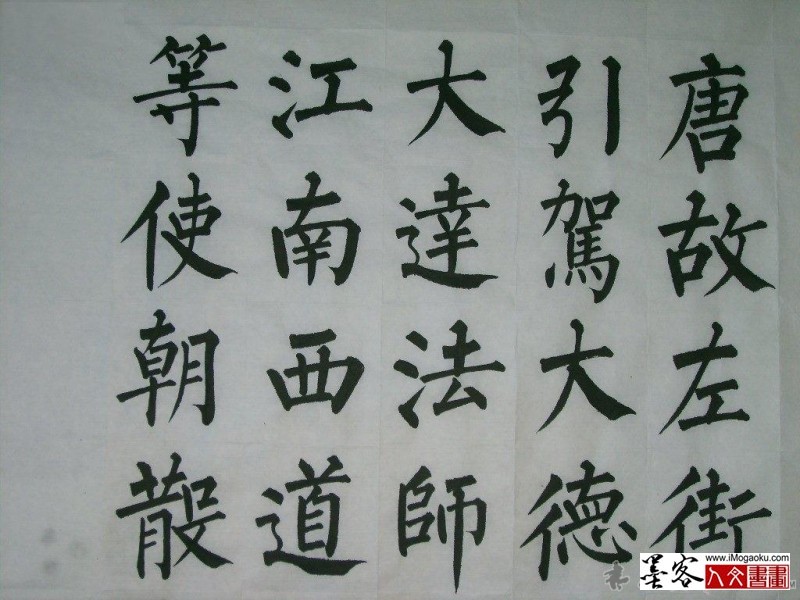 唐故左街
引駕大德
大達法師
江南西道
等使朝散
www.iMogaoku.com
墨客
人文書畫